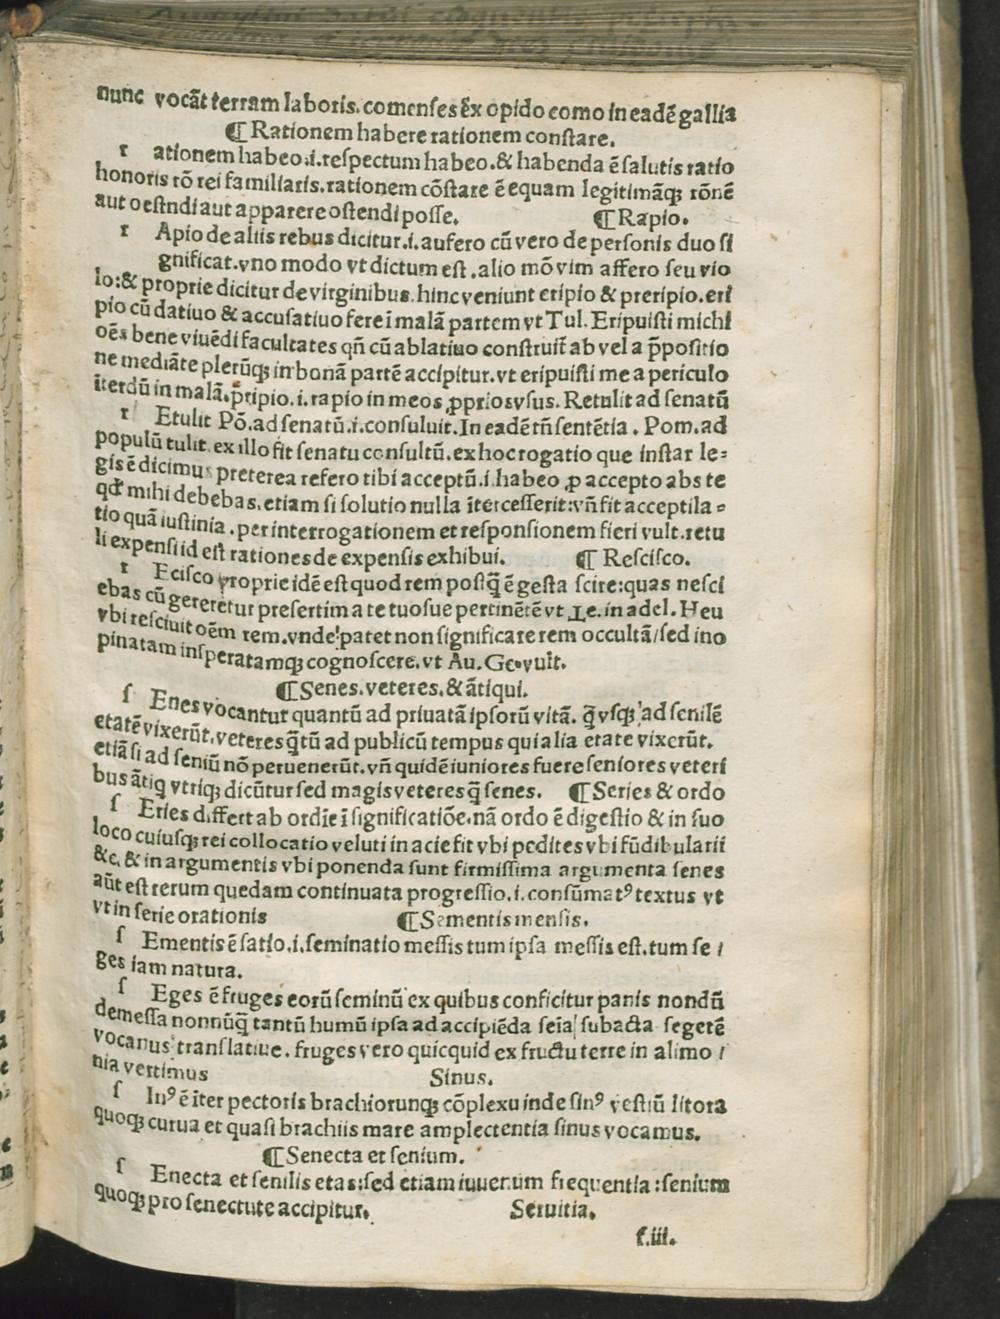 nunc vocāt terram laboris. comenses ex opido como in eadē gallia
¶ Rationem habere rationem constare.
r ationem habeo .i. respectum habeo. & habenda ē salutis ratio
honoris rō rei familiaris. rationem cōstare ē equam legitimāq; rōnē
aut oestndi aut apparere ostendi posse. ¶ Rapio.
r Apio de aliis rebus dicitur .i. aufero cū vero de personis duo si
gnificat. vno modo vt dictum est. alio mō vim affero seu vio
lo: & proprie dicitur de virginibus. hinc veniunt eripio & preripio. eri
pio cū datiuo & accusatiuo fere ī malā partem vt Tul. Eripuisti michi
oēs bene viuēdi facultates qñ cū ablatiuo construit̄ ab vel a p̄positio
ne mediāte plerūq; in bonā partē accipitur. vt eripuisti me a periculo
īterdū in malā. p̄ripio .i. rapio in meos ꝓprios vsus. Retulit ad senatū
r Etulit Pō. ad senatū .i. consuluit. In eadē tñ sentētia. Pom. ad
populū tulit. ex illo fit senatu consultū. ex hoc rogatio que instar le⸗
gis ē dicimus preterea refero tibi acceptū .i. habeo ꝓ accepto abs te
qd mihi debebas. etiam si solutio nulla ītercesserit: vñ fit acceptila⸗
tio quā iustinia. per interrogationem et responsionem fieri vult. retu
li expensi id est rationes de expensis exhibui. ¶ Rescisco.
r Ecisco proprie idē est quod rem postq̄ ē gesta scire: quas nesci
ebas cū gereretur presertim a te tuosue pertinētē vt Te. in adel. Heu
vbi resciuit oēm rem. vnde patet non significare rem occultā / sed ino
pinatam insperatamq; cognoscere. vt Au. Ge. vult.
¶ Senes. veteres. & ātiqui.
ſ Enes vocantur quantū ad priuatā ipsorū vitā. q̄ vsq; ad senilē
etatē vixerūt. veteres q̄tū ad publicū tempus qui alia etate vixerūt.
etiā si ad seniū nō peruenerūt. vñ quidē iuniores fuere seniores veteri
bus ātiq vtriq; dicūtur sed magis veteres q̄ senes. ¶ Series & ordo
ſ Eries differt ab ordīe ī significatiōe. nā ordo ē digestio & in suo
loco cuiusq; rei collocatio veluti in acie fit vbi pedites vbi fūdibularii
&c. & in argumentis vbi ponenda sunt firmissima argumenta senes
aūt est rerum quedam continuata progressio .i. consūmatꝰ textus vt
vt in serie orationis ¶ Sementis mensis.
ſ Ementis ē satio .i. seminatio messis tum ipsa messis est. tum se /
ges iam natura.
ſ Eges ē fruges eorū seminū ex quibus conficitur panis nondū
demessa nonnūq̄ tantū humū ipsa ad accipiēda seīa subacta segetē
vocanus translatiue. fruges vero quicquid ex fructu terre in alimo /
nia vertimus Sinus.
ſ Inꝰ ē īter pectoris brachiorunq; cōplexu inde sinꝰ vestiū litora
quoq; curua et quasi brachiis mare amplectentia sinus vocamus.
¶ Senecta et senium.
ſ Enecta et senilis etas: sed etiam iuuenum frequentia: senium
quoq; pro senectute accipitur. Seruitia.
f.iii.